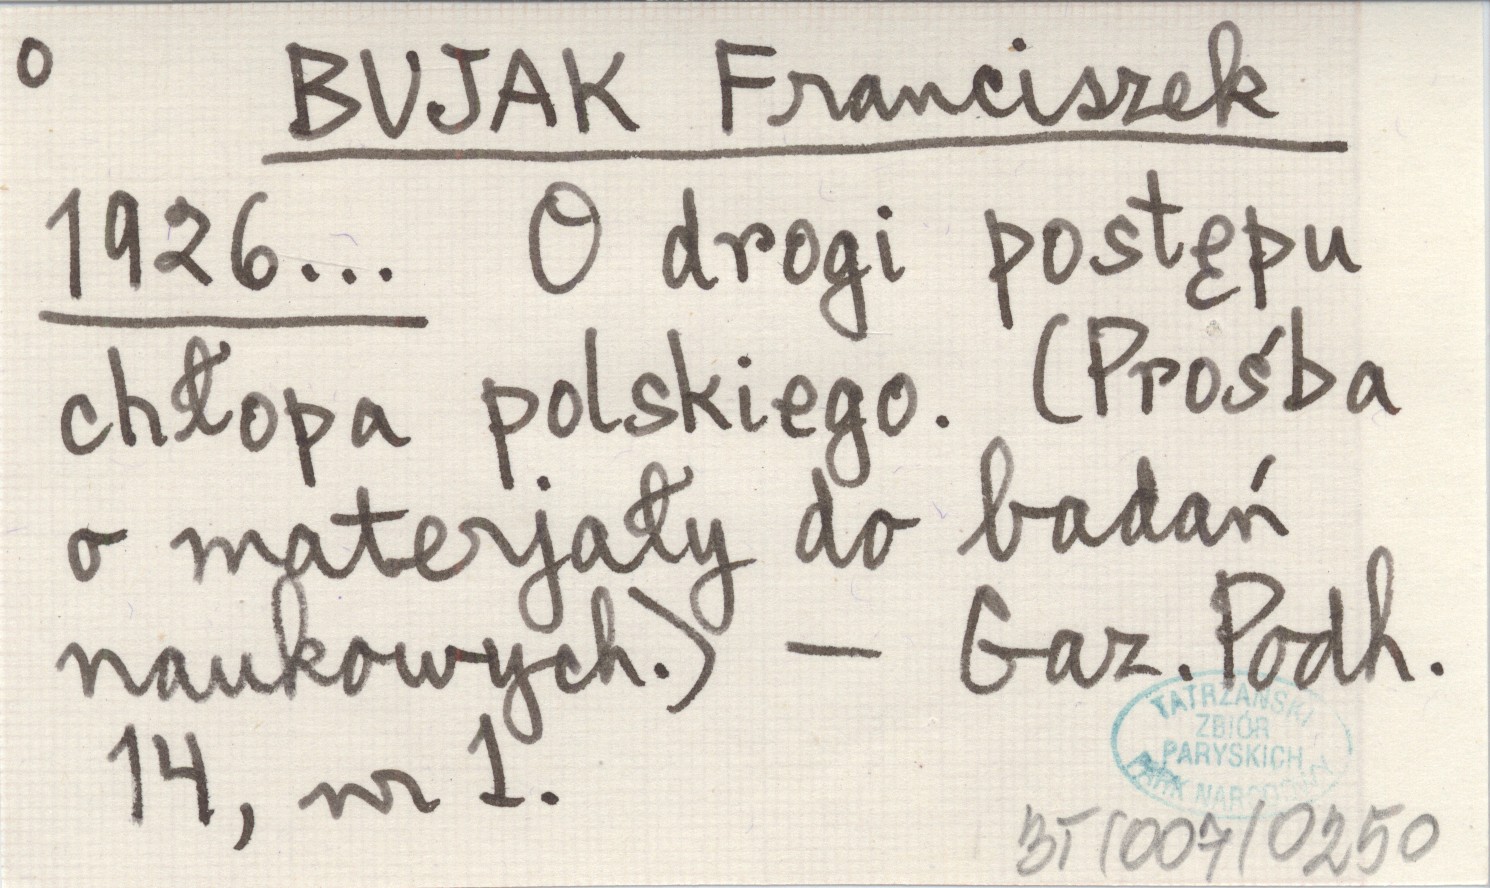 o
BUJAK Franciszek
1926... O drogi postępu
chłopa polskiego. (Prośba
o materjały do badań
naukowych.) — Gaz. Podh.
14, nr 1.
TATRZAŃSKI
ZBIÓR
PARYSKICH
PARK NARODOWY
BT/007/0250